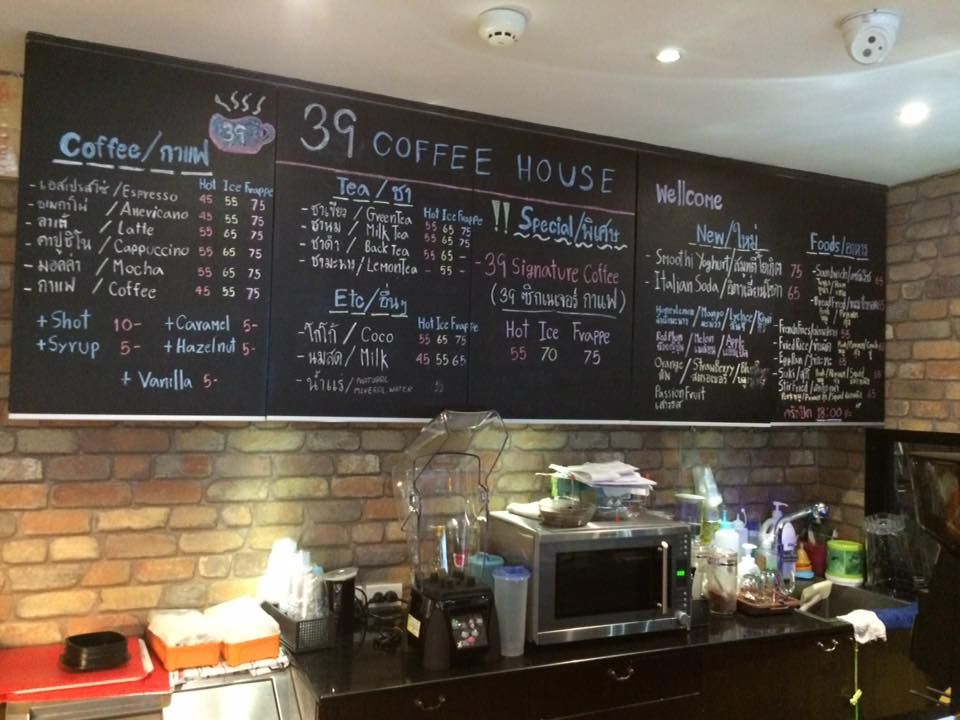 39
Coffee/กาแฟ
Hot Ice Frappe
- เอสเปรสโซ่ / Espresso 45 55 75
- อเมกาโน่ / Americano 45 55 75
- ลาเต้ / Latte 55 65 75
- คาปูชิโน / Cappuccino 55 65 75
- มอคค่า / Mocha 55 65 75
- กาแฟ / Coffee 45 55 75
+ Shot 10- + Caramel 5-
+ Syrup 5- + Hazelnut 5-
+ Vanilla 5-
39 COFFEE HOUSE
Tea/ชา
Hot Ice Frappe
- ชาเขียว / Green Tea 55 65 75
- ชานม / Milk Tea 55 65 75
- ชาดำ / Back Tea
- ชามะนาว / Lemon Tea - 55 -
Etc/อื่นๆ
Hot Ice Frappe
- โกโก้ / Coco 55 65 75
- นมสด / Milk 45 55 65
- น้ำแร่ / NATURAL MINERAL WATER
!! Special/พิเศษ
- 39 Signature Coffee
(39 ซิกเนเจอรื่ กาแฟ)
Hot Ice Frappe
55 70 75
Wellcome
New/ใหม่
- Smoothi Yoghurt/สมูทตี้โยเกิต 75
- Italian Soda/อิตาเลี่ยนโซดา 65
Honeylemon/Mango/Lychee/Kiwi
Melon/Apple
Orange/Strawberry
ส้ม
Passion Fruit
เสาวรส
Foods/อาหาร
- Sandwich
- Bread Fried
- Fried Rice
- Stir Fried
ครัวปิด 18:00 น.